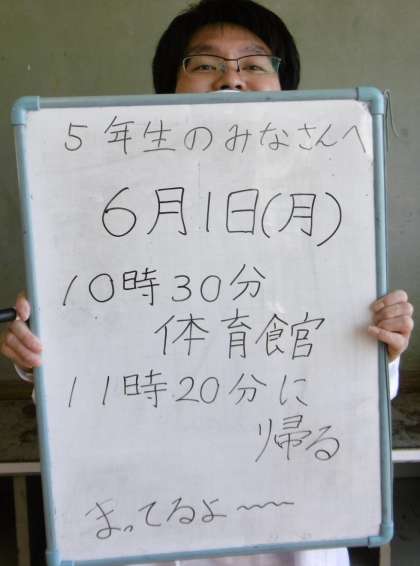 5年生のみなさんへ
6月1日(月)
10時30分
体育館
11時20分に
帰る
まってるよ〜〜